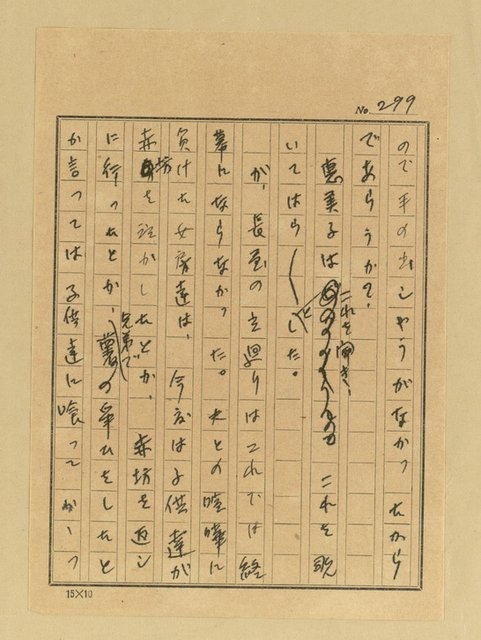 No. 299
ので手の出しやうがなかつたから
であらうか?
恵美子はこれを聞き、これを眺
いてはら〳〵した。
が、長屋の立廻りはこれでは終
幕にならなかつた。夫との喧嘩に
負けた女房達は、今度は子供達が
赤坊を泣かしたとか、赤坊を返し
に行つたとか、兄弟で の争ひをしたと
か言つては子供達に喰つてかゝつ
15×10